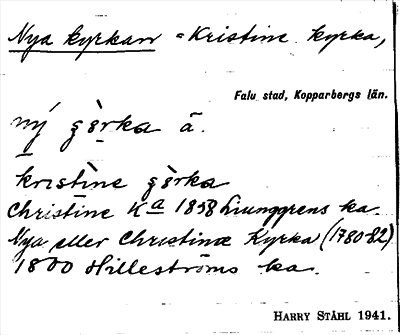 Nya kyrkan = Kristine kyrka,
Falu stad, Kopparbergs län.
ný gèrka ā.
kristìne gèrka
Christine Ka 1858 Liunggrens ka.
Nya eller Christinæ Kyrka (1780-82)
1800 Hilleströms ka.
HARRY STÅHL 1941.